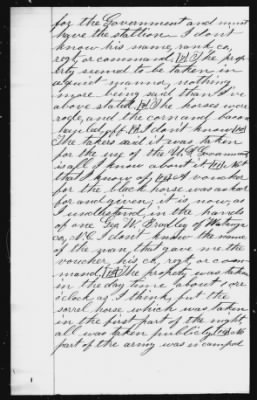 for the Government and must
have the stallion I don't
know his name, rank, co,
regt, or command. The prop
erty seemed to be taken in
a quiet manner, nothing
more being said than I've
above stated. The horses were
rode, and the corn and bacon
hauled off. I don't know
The takers said it was taken
for the use of the U.S.
is all I know about it
that I know of. A voucher
for the black horse was asked
for and given, it is now, as
I understand, in the hands
of one Geo W. Bradley of
co, N.C. I don't know the name
of the man that gave me the
voucher, his co, regt, or com
mand. The property was taken
in the day time about one
o'clock as I think, but the
sorrel horse which was taken
in the first part of the night
all was taken publicly. No
part of the army was incampd